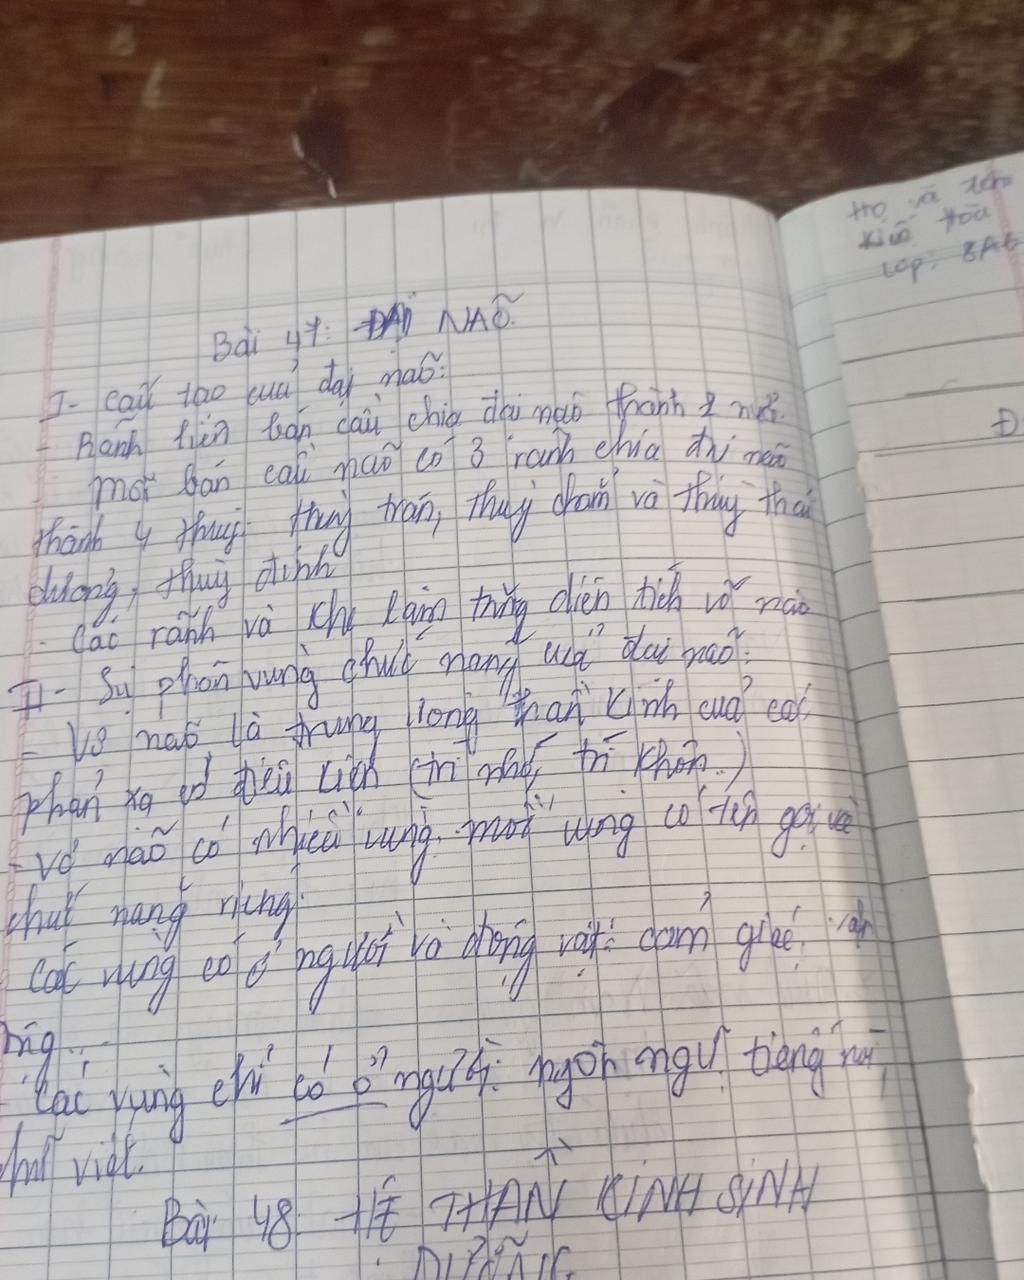 Bài 47: ĐẠI NÃO.
I- Cấu tạo của đại não:
- Rãnh liên bán cầu chia đại não thành 2 nửa.
- Một bán cầu não có 3 rãnh chia đại não
thành 4 thuỳ: thuỳ trán, thuỳ chẩm và thuỳ thái
dương, thuỳ đỉnh
- Các rãnh và khe làm tăng diện tích vỏ não
II- Sự phân vùng chức năng của đại não:
- Vỏ não là trung ương thần kinh của các
phản xạ có điều kiện (trí nhớ, trí khôn..)
- Vỏ não có nhiều vùng, mỗi vùng có tên gọi và
chức năng riêng.
Các vùng có ở người và động vật: cảm giác, vận
động...
- Các vùng chỉ có ở người: ngôn ngữ, tiếng nói,
chữ viết.
Bài 48. HỆ THẦN KINH SINH
DƯỠNG.
Họ và tên
Kiều Hòa
Lớp: 8A6
Đ